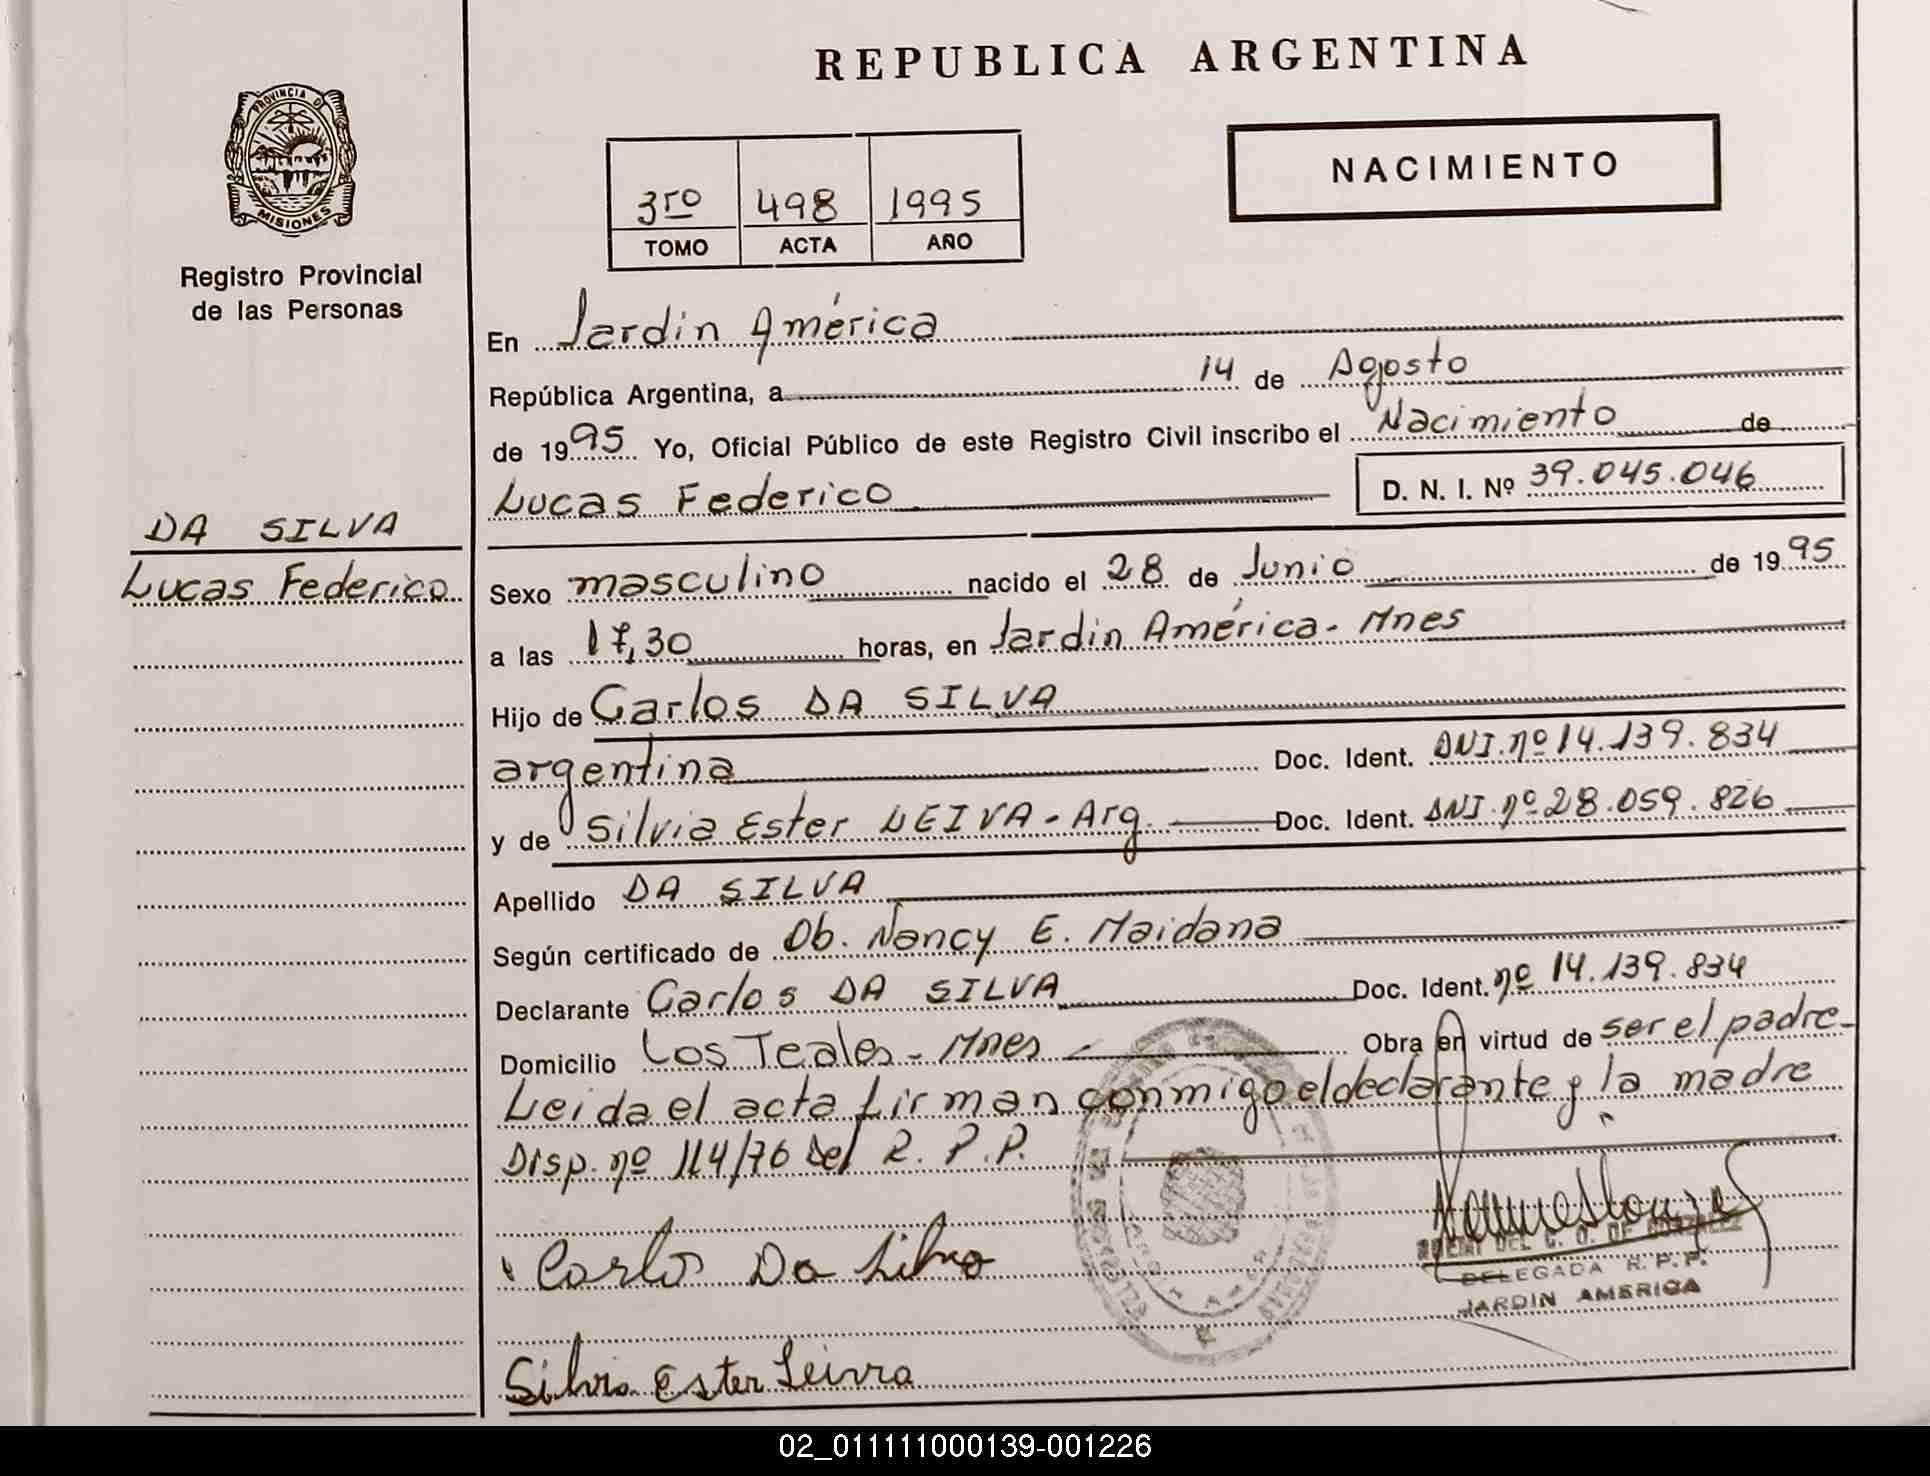 REPUBLICA ARGENTINA
PROVINCIA D
MISIONES
Registro Provincial
de las Personas
NACIMIENTO
3ro 498 1995
TOMO ACTA AÑO
En Jardin América
República Argentina, a 14 de Agosto
de 1995 Yo, Oficial Público de este Registro Civil inscribo el Nacimiento de
Lucas Federico D. N. I. Nº 39.045.046
DA SILVA
Lucas Federico
Sexo masculino nacido el 28 de Junio de 1995
a las 17,30 horas, en Jardin América - Mnes
Hijo de Carlos DA SILVA
argentina Doc. Ident. DNI. nº 14.139.834
y de Silvia Ester LEIVA - Arg. Doc. Ident. DNI. nº 28.059.826
Apellido DA SILVA
Según certificado de Ob. Nancy E. Maidana
Declarante Carlos DA SILVA Doc. Ident. nº 14.139.834
Domicilio Los Teales - Mnes - Obra en virtud de ser el padre -
Leida el acta firman conmigo el declarante y la madre
Disp. nº 114/76 del R. P. P.
Carlos Da Silva
DEL C. D. DE GONZALEZ
DELEGADA R. P. P.
JARDIN AMERICA
Silvia Ester Leiva
02_011111000139-001226